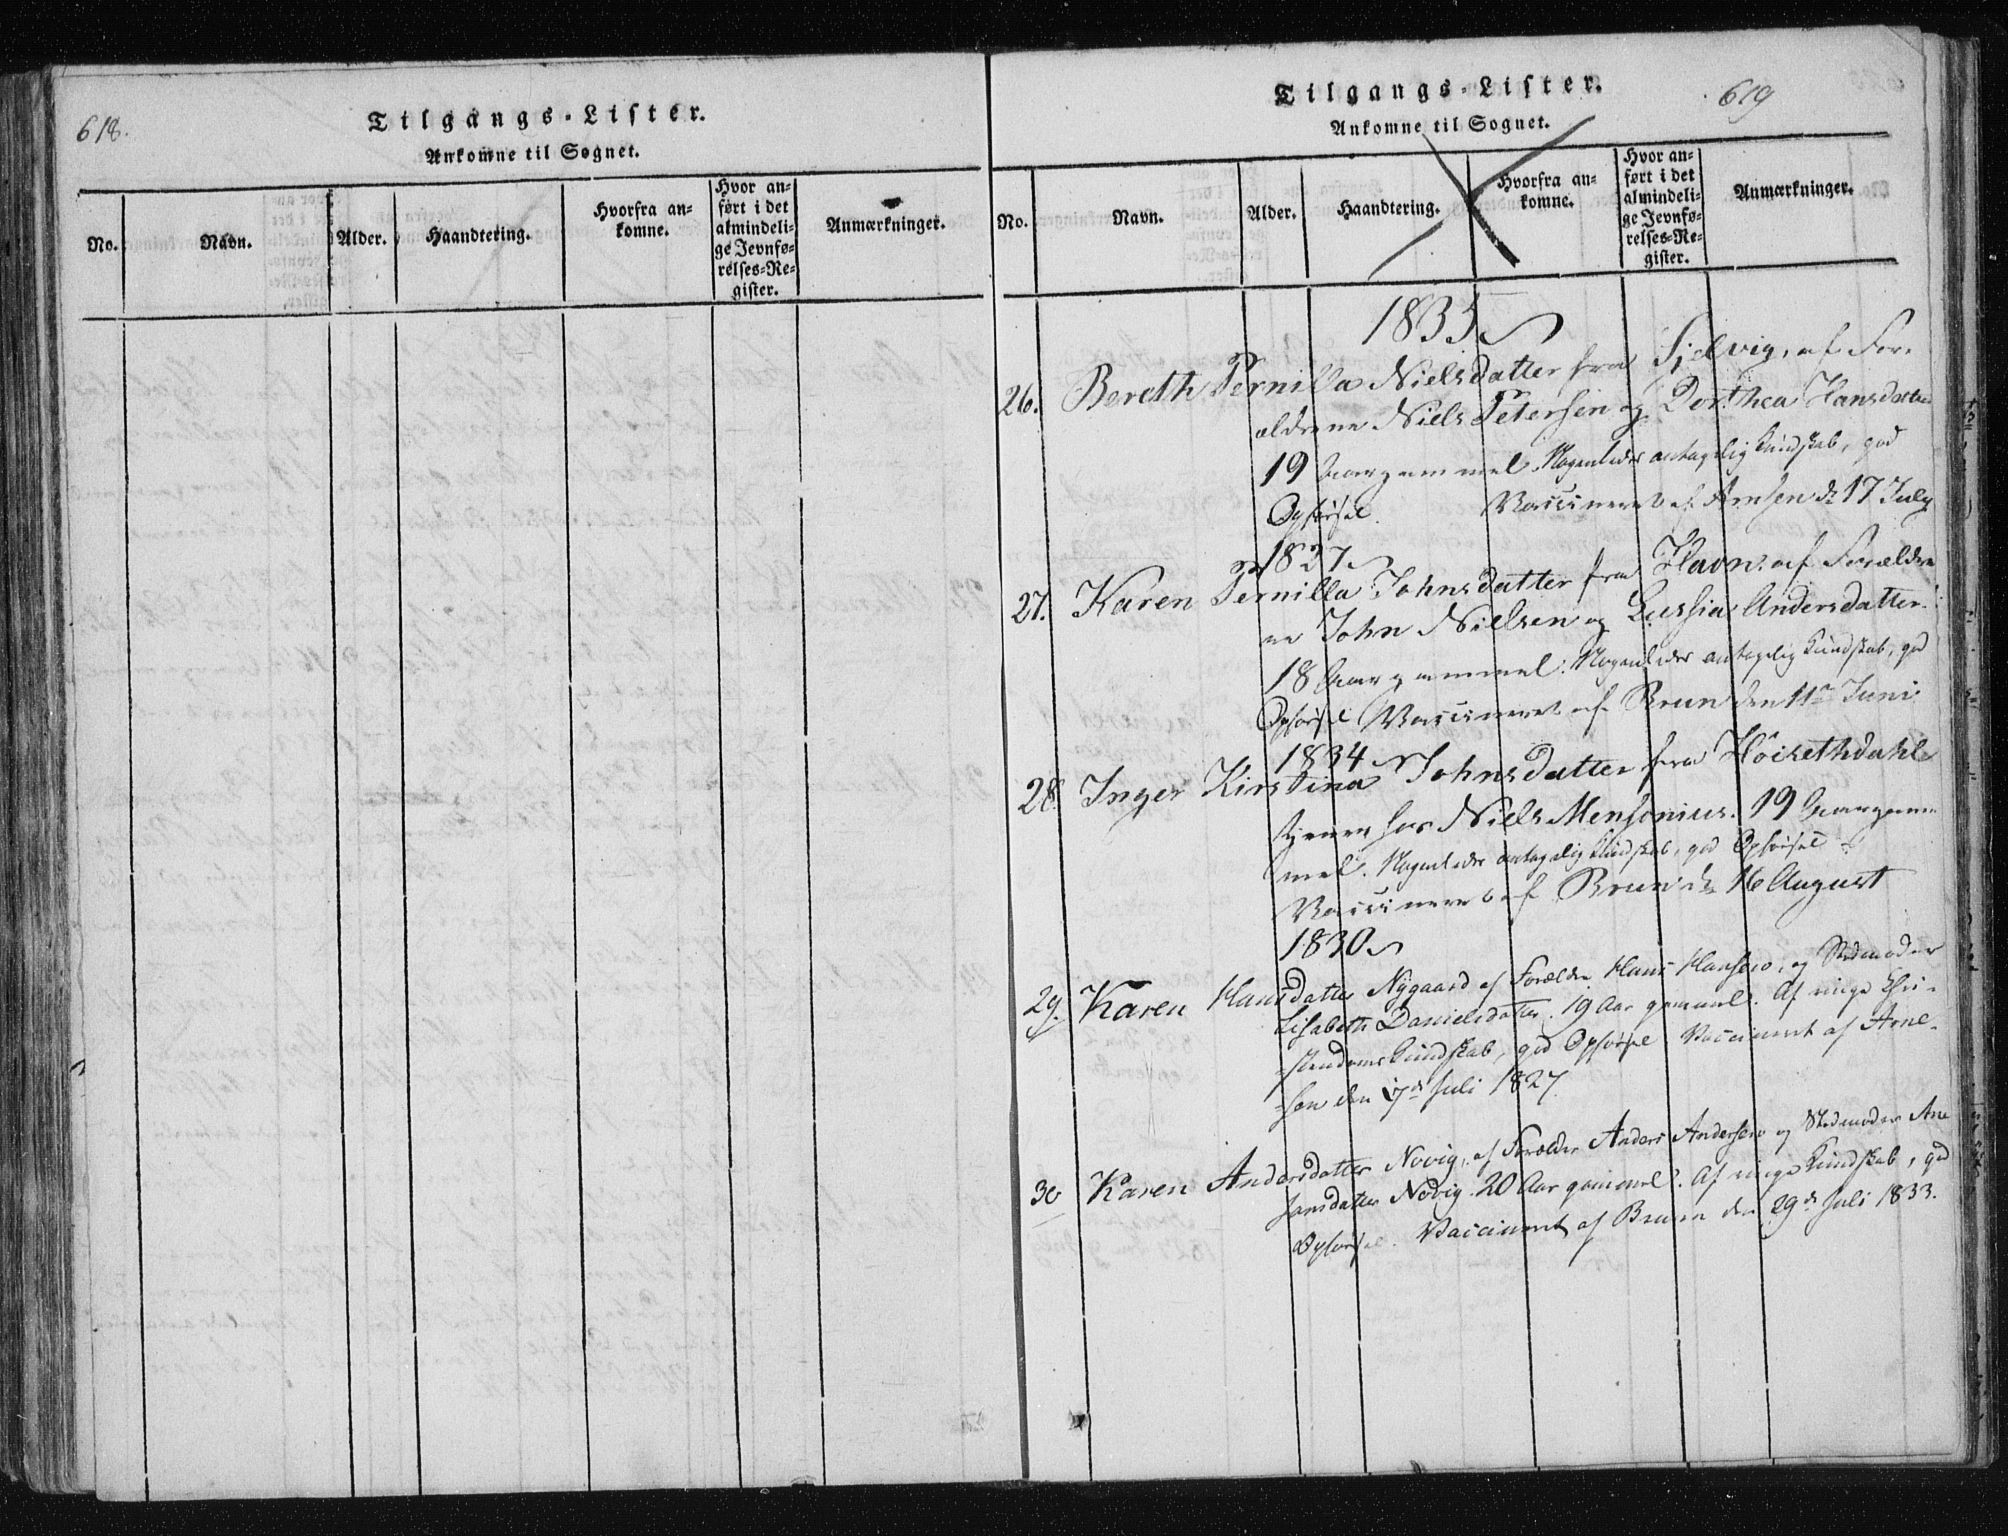 618.
Tilgangs-Lister.
Ankomne til Sognet.
No.
Navn.
Alder.
Haandtering.
Hvorfra an-
komne.
Hvor an-
ført i det
almindeli-
ge Jevnfø-
relses-Re-
gister.
Anmærkninger.
Tilgangs-Lister.
619
Ankomne til Sognet.
No.
Navn.
Alder.
Haandtering.
Hvorfra an-
komne.
Hvor an-
ført i det
almindeli-
ge Jevnfø-
relses-Re-
gister.
Anmærkninger.
1835
26. Bereth Pernilla Nielsdatter fra Sjelvig, af For-
ældrene Niels Petersen og Dorthea Hansdatter
19 Aar gammel. Nogenledes antagelig Kundskab, god
Opførsel. Vaccineret af Arnsen d. 17 July
1827
27. Karen Pernilla Johnsdatter fra Havn af Forældre
ne John Nielsen og Lussia Andersdatter.
18 Aar gammel. Nogenledes antagelig Kundskab, god
Opførsel Vaccineret af Brun den 11te Juni
1834
28. Inger Kirstina Johnsdatter fra Höisethdahl
tjener hos Niels Mensonius. 19 Aar gam
mel. Nogenledes antagelig Kundskab, god Opførsel
Vaccineret af Brun d. 16 August
1830
29. Karen Hansdatter Nygaard af Forældre Hans Hansen, og Stedmoder
Lisabeth Danielsdatter. 19 Aar gammel. Af ringe Chri-
stendoms Kundskab, god Opførsel Vaccineret af Arne-
sen den 17de Juli 1827.
30 Karen Andersdatter Novig, af Forældre Anders Andersen og Stedmoder Ane
Jansdatter Novig. 20 Aar gammel. Af ringe Kundskab, god
Opførsel. Vaccineret af Bruun den 29de Juli 1833.